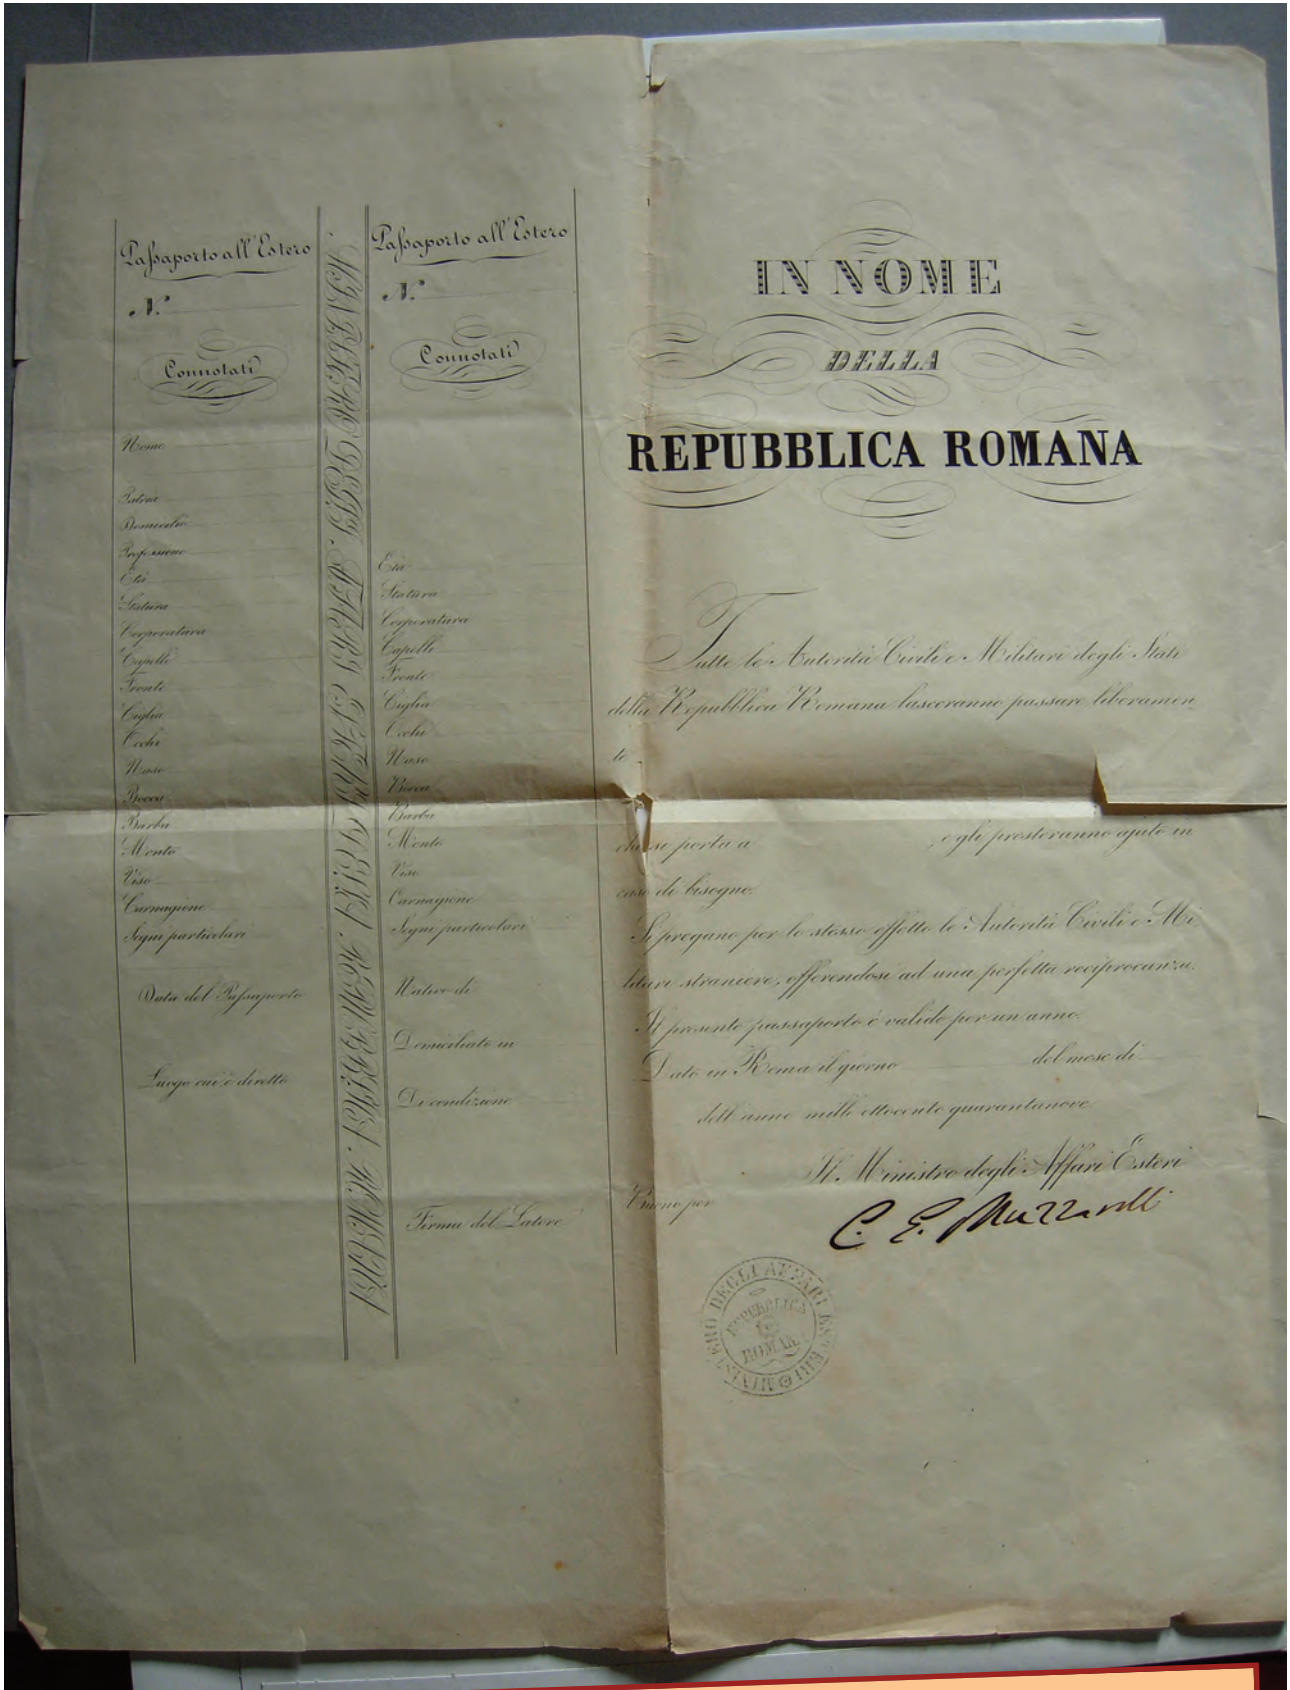 Passaporto all'Estero
N.
Connotati
Nome
Patria
Domicilio
Professione
Età
Statura
Corporatura
Capelli
Fronte
Ciglia
Occhi
Naso
Bocca
Barba
Mento
Viso
Carnagione
Segni particolari
Data del Passaporto
Luogo cui è diretto
Passaporto all'Estero
N.
Connotati
Età
Statura
Corporatura
Capelli
Fronte
Ciglia
Occhi
Naso
Bocca
Barba
Mento
Viso
Carnagione
Segni particolari
Nativo di
Domiciliato in
Di condizione
Firma del Latore
IN NOME
DELLA
REPUBBLICA ROMANA
Tutte le Autorità Civili e Militari degli Stati
della Repubblica Romana lasceranno passare liberamen
te
che si porta a , e gli presteranno ajuto in
caso di bisogno.
Si pregano per lo stesso effetto le Autorità Civili e Mi
litari straniere, offerendosi ad una perfetta reciprocanza.
Il presente passaporto è valido per un anno.
Dato in Roma il giorno del mese di
dell'anno mille ottocento quarantanove
Il Ministro degli Affari Esteri
Buono per
C. E. Muzzarelli
MINISTERO DEGLI AFFARI ESTERI
REPUBBLICA
ROMANA